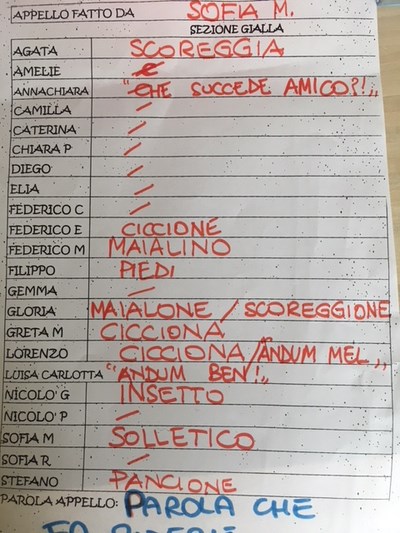 APPELLO FATTO DA SOFIA M.
SEZIONE GIALLA
AGATA SCOREGGIA
AMELIE
ANNACHIARA "CHE SUCCEDE AMICO?!„
CAMILLA /
CATERINA /
CHIARA P /
DIEGO /
ELIA /
FEDERICO C /
FEDERICO E CICCIONE
FEDERICO M MAIALINO
FILIPPO PIEDI
GEMMA /
GLORIA MAIALONE / SCOREGGIONE
GRETA M CICCIONA
LORENZO CICCIONA/ANDUM MEL„
LUISA CARLOTTA "ANDUM BEN!„
NICOLO' G INSETTO
NICOLO' P /
SOFIA M SOLLETICO
SOFIA R /
STEFANO PANCIONE
PAROLA APPELLO: PAROLA CHE